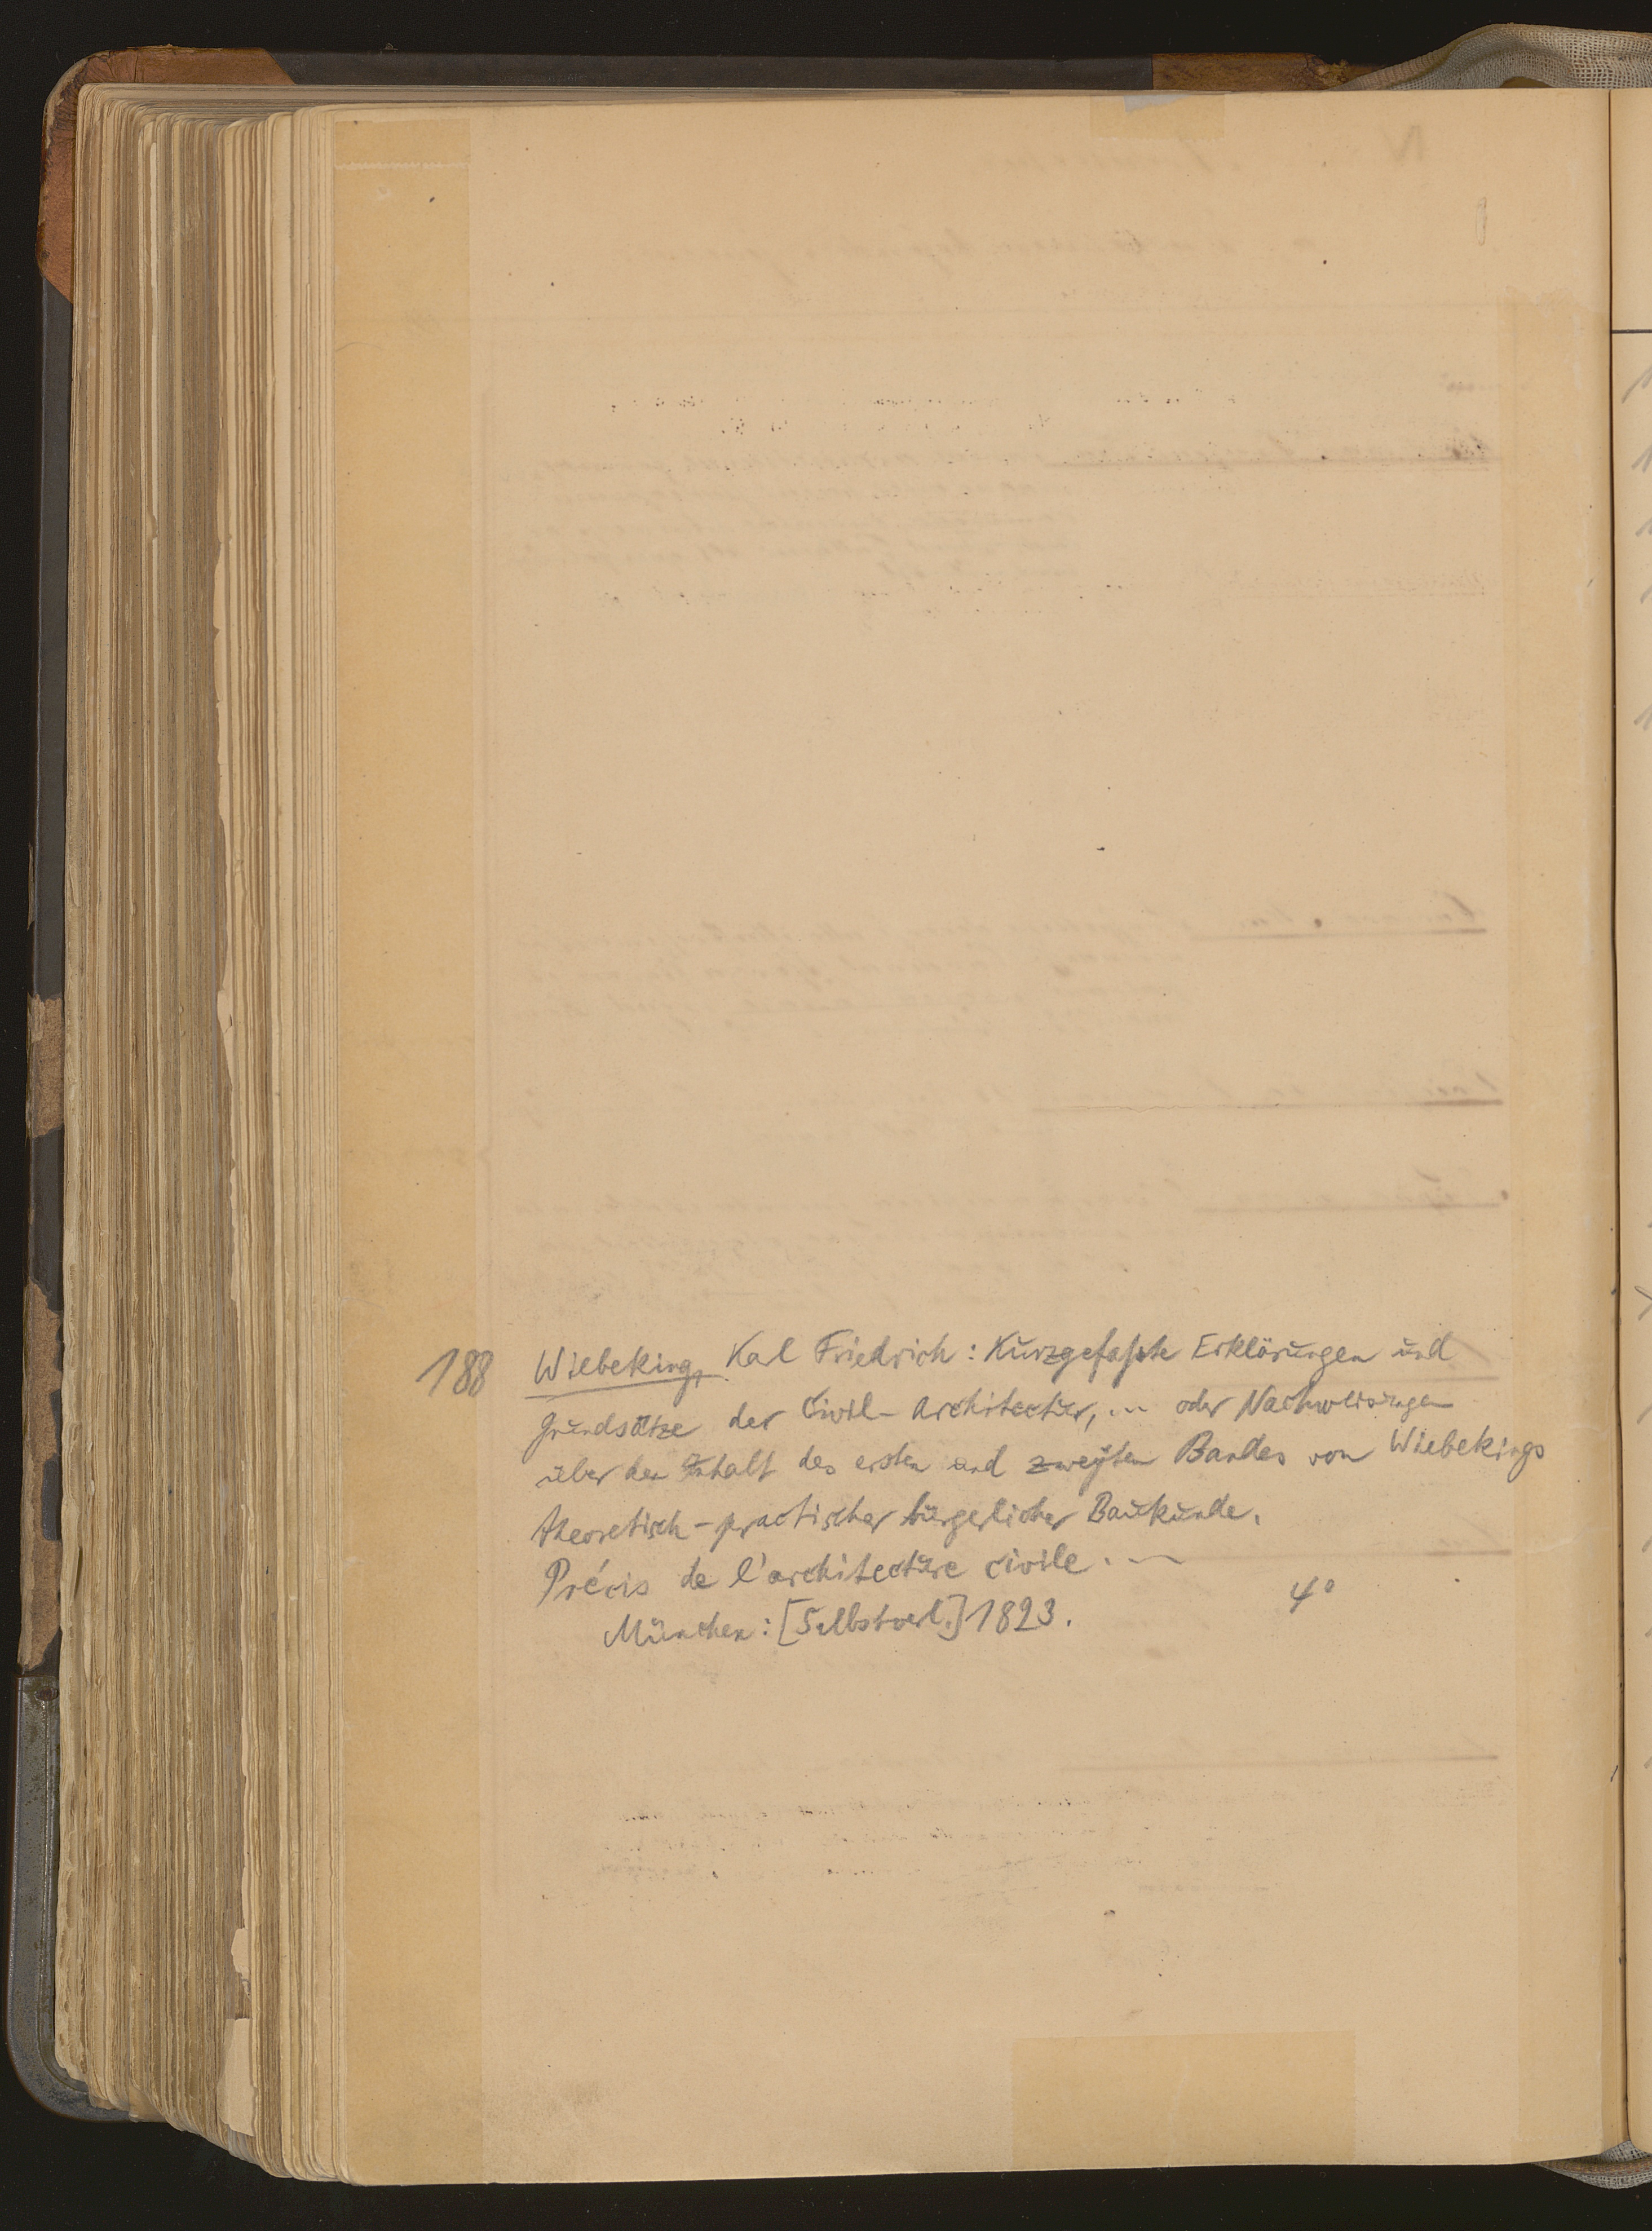 188 Wiebeking, Karl Friedrich: Kurzgefaßte Erklärungen und
Grundsätze der Civil-Architectur, ... oder Nachweisungen
über den Inhalt des ersten und zweÿten Bandes von Wiebekings
theoretisch-practischer bürgerlicher Baukunde.
Précis de l'architecture civile. —
München: [Selbstverl.] 1823. 4°